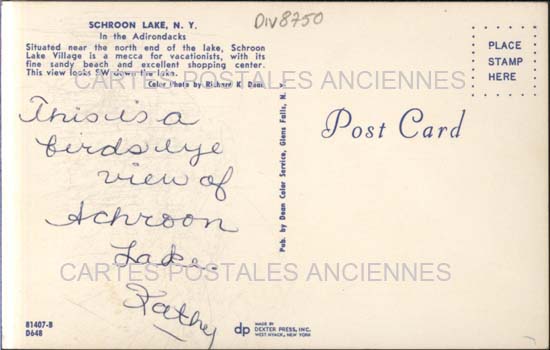 SCHROON LAKE, N. Y.
In the Adirondacks
Situated near the north end of the lake, Schroon
Lake Village is a mecca for vacationists, with its
fine sandy beach and excellent shopping center.
This view looks SW down the lake.
Color Photo by Richard K. Dean
DIV8750
PLACE
STAMP
HERE
CARTES POSTALES ANCIENNES
This is a
birds eye
view of
Schroon
Lake.
Kathy
Post Card
Pub. by Dean Color Service, Glens Falls, N. Y.
CARTES POSTALES ANCIENNES
81407-B
D64B
dp
MADE BY
DEXTER PRESS, INC.
WEST NYACK, NEW YORK